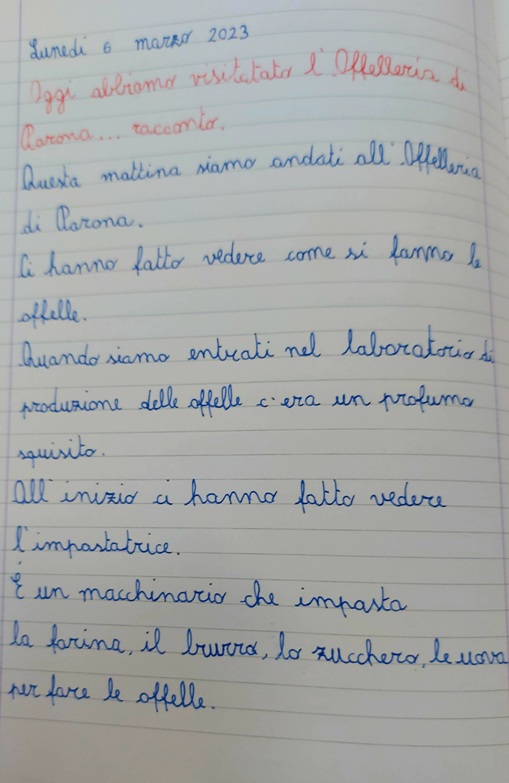 Lunedì 6 marzo 2023
Oggi abbiamo visitatato l'Offelleria di
Parona... racconto.
Questa mattina siamo andati all'Offelleria
di Parona.
Ci hanno fatto vedere come si fanno le
offelle.
Quando siamo entrati nel laboratorio di
produzione delle offelle c'era un profumo
squisito.
All'inizio ci hanno fatto vedere
l'impastatrice.
È un macchinario che impasta
la farina, il burro, lo zucchero, le uova
per fare le offelle.